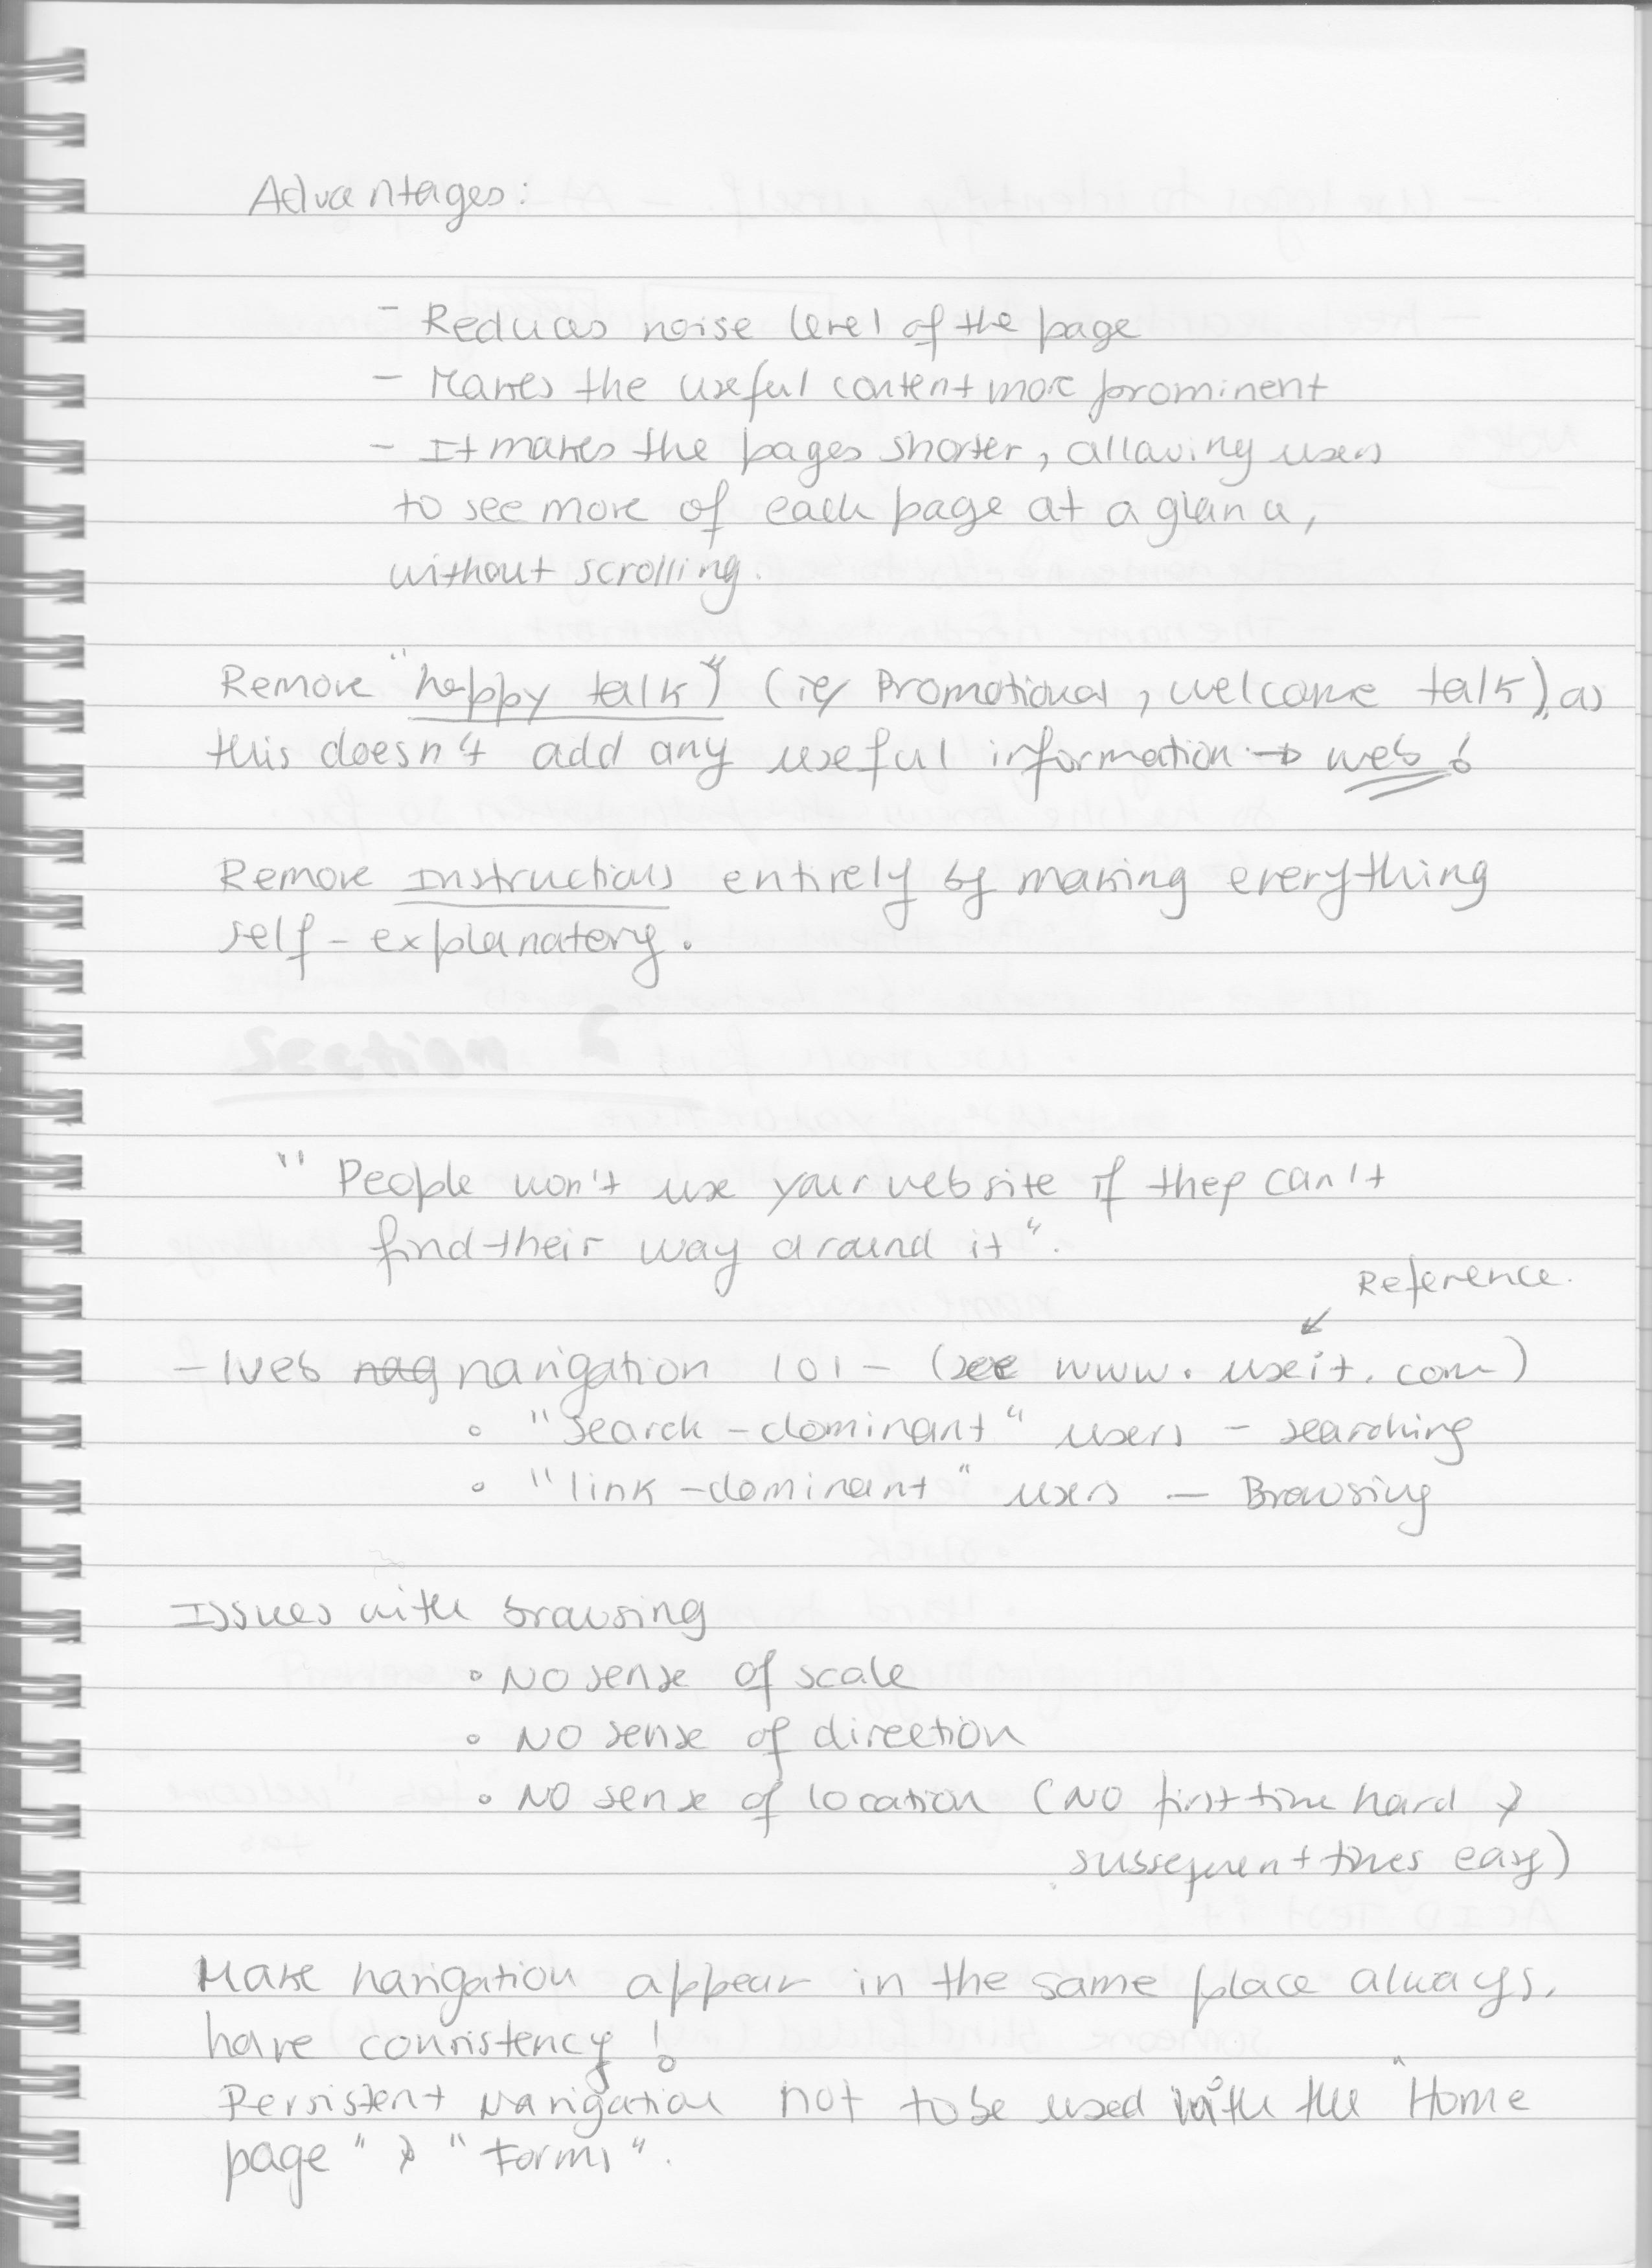 Advantages:
- Reduces noise level of the page
- Makes the useful content more prominent
- It makes the pages shorter, allowing users
to see more of each page at a glance,
without scrolling.
Remove "happy talk" (ie, Promotional, welcome talk), as
this doesn't add any useful information → web!
Remove Instructions entirely by making everything
self-explanatory.
Section
"People won't use your website if they can't
find their way around it".
Reference.
- Web nag navigation 101 - (see www.useit.com)
° "search-dominant" users - searching
° "link-dominant" users - Browsing
Issues with browsing
° No sense of scale
° No sense of direction
° No sense of location (No first time hard &
subsequent times easy)
Make navigation appear in the same place always,
have consistency!
Persistent Navigation not to be used with the "Home
page" & "Forms".